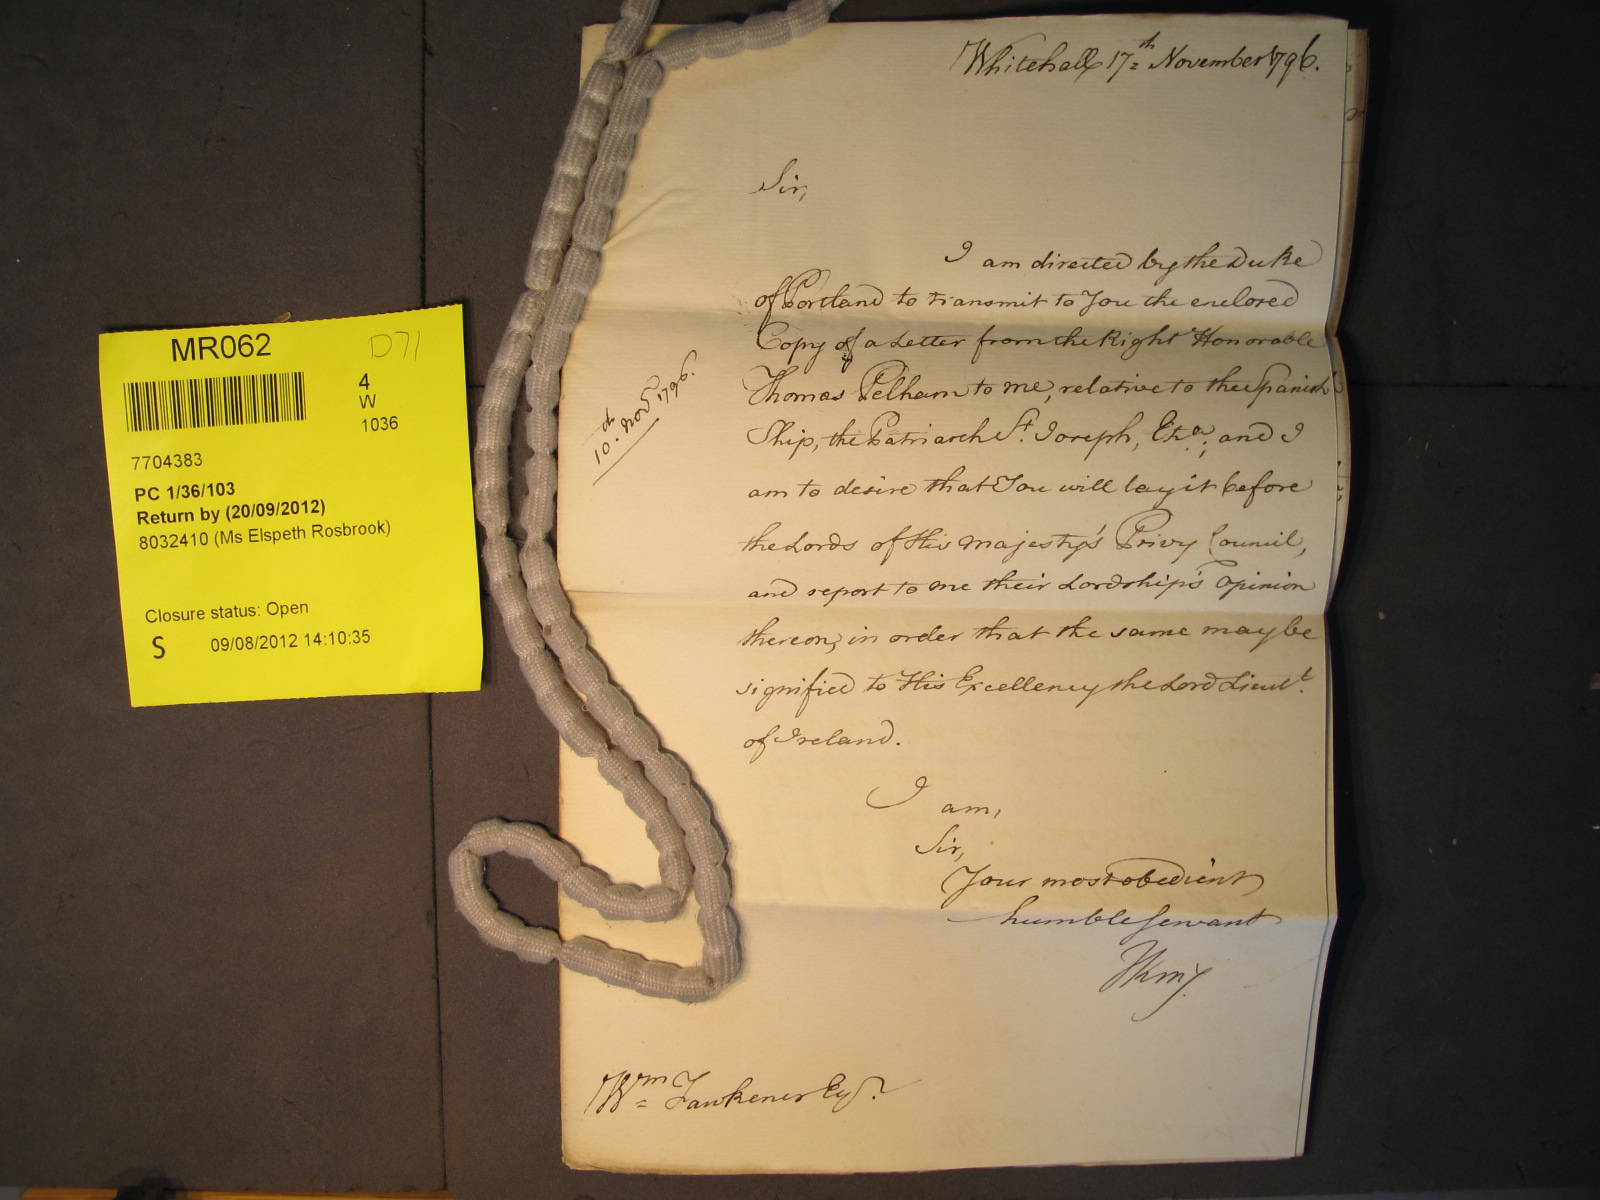 MR062
D71
4
W
1036
7704383
PC 1/36/103
Return by (20/09/2012)
8032410 (Ms Elspeth Rosbrook)
Closure status: Open
S 09/08/2012 14:10:35
Whitehall 17th November 1796.
Sir,
I am directed by the Duke
of Portland to transmit to You the enclosed
Copy of a Letter from the Right Honorable
Thomas Pelham to me, relative to the Spanish
Ship, the Patriarch St. Joseph, &ca; and I
am to desire that You will lay it before
the Lords of His Majesty's Privy Council,
and report to me their Lordship's Opinion
thereon, in order that the same may be
signified to His Excellency the Lord Lieut.
of Ireland.
10th Novr 1796.
I am,
Sir,
Your most obedient
humble Servant
Wm Fawkener Esqr.